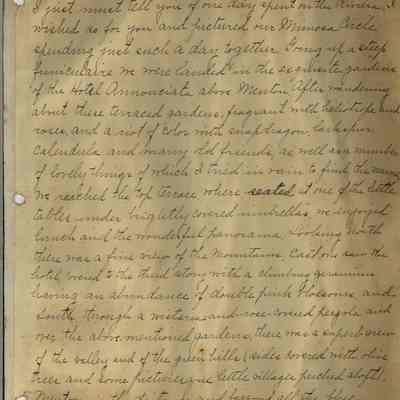 I just must tell you of one day spent on the Riviera. I
wished so for you and pictured our Mimosa Circle
spending just such a day together. Going up a steep
funiculaire we were landed in the exquisite gardens
of the Hotel Annunciata above Menton. After wandering
about these terraced gardens, fragrant with heliotrope and
roses, and a riot of color with snapdragon, larkspur,
calendula and many old friends, as well as a number
of lovely things of which I tried in vain to find the names,
we reached the top terrace where seated at one of the little
tables under brightly covered umbrellas, we enjoyed
lunch and the wonderful panorama. Looking North
there was a fine view of the Mountains, East one saw the
hotel vined to the third story with a climbing geranium
having an abundance of double pink blossoms, and
South through a wisteria and rose covered pergola and
over the above mentioned gardens, there was a superb view
of the valley and of the green hills (sides covered with olive
trees and some picturesque little villages perched aloft).
Menton in the and beyond all the blue